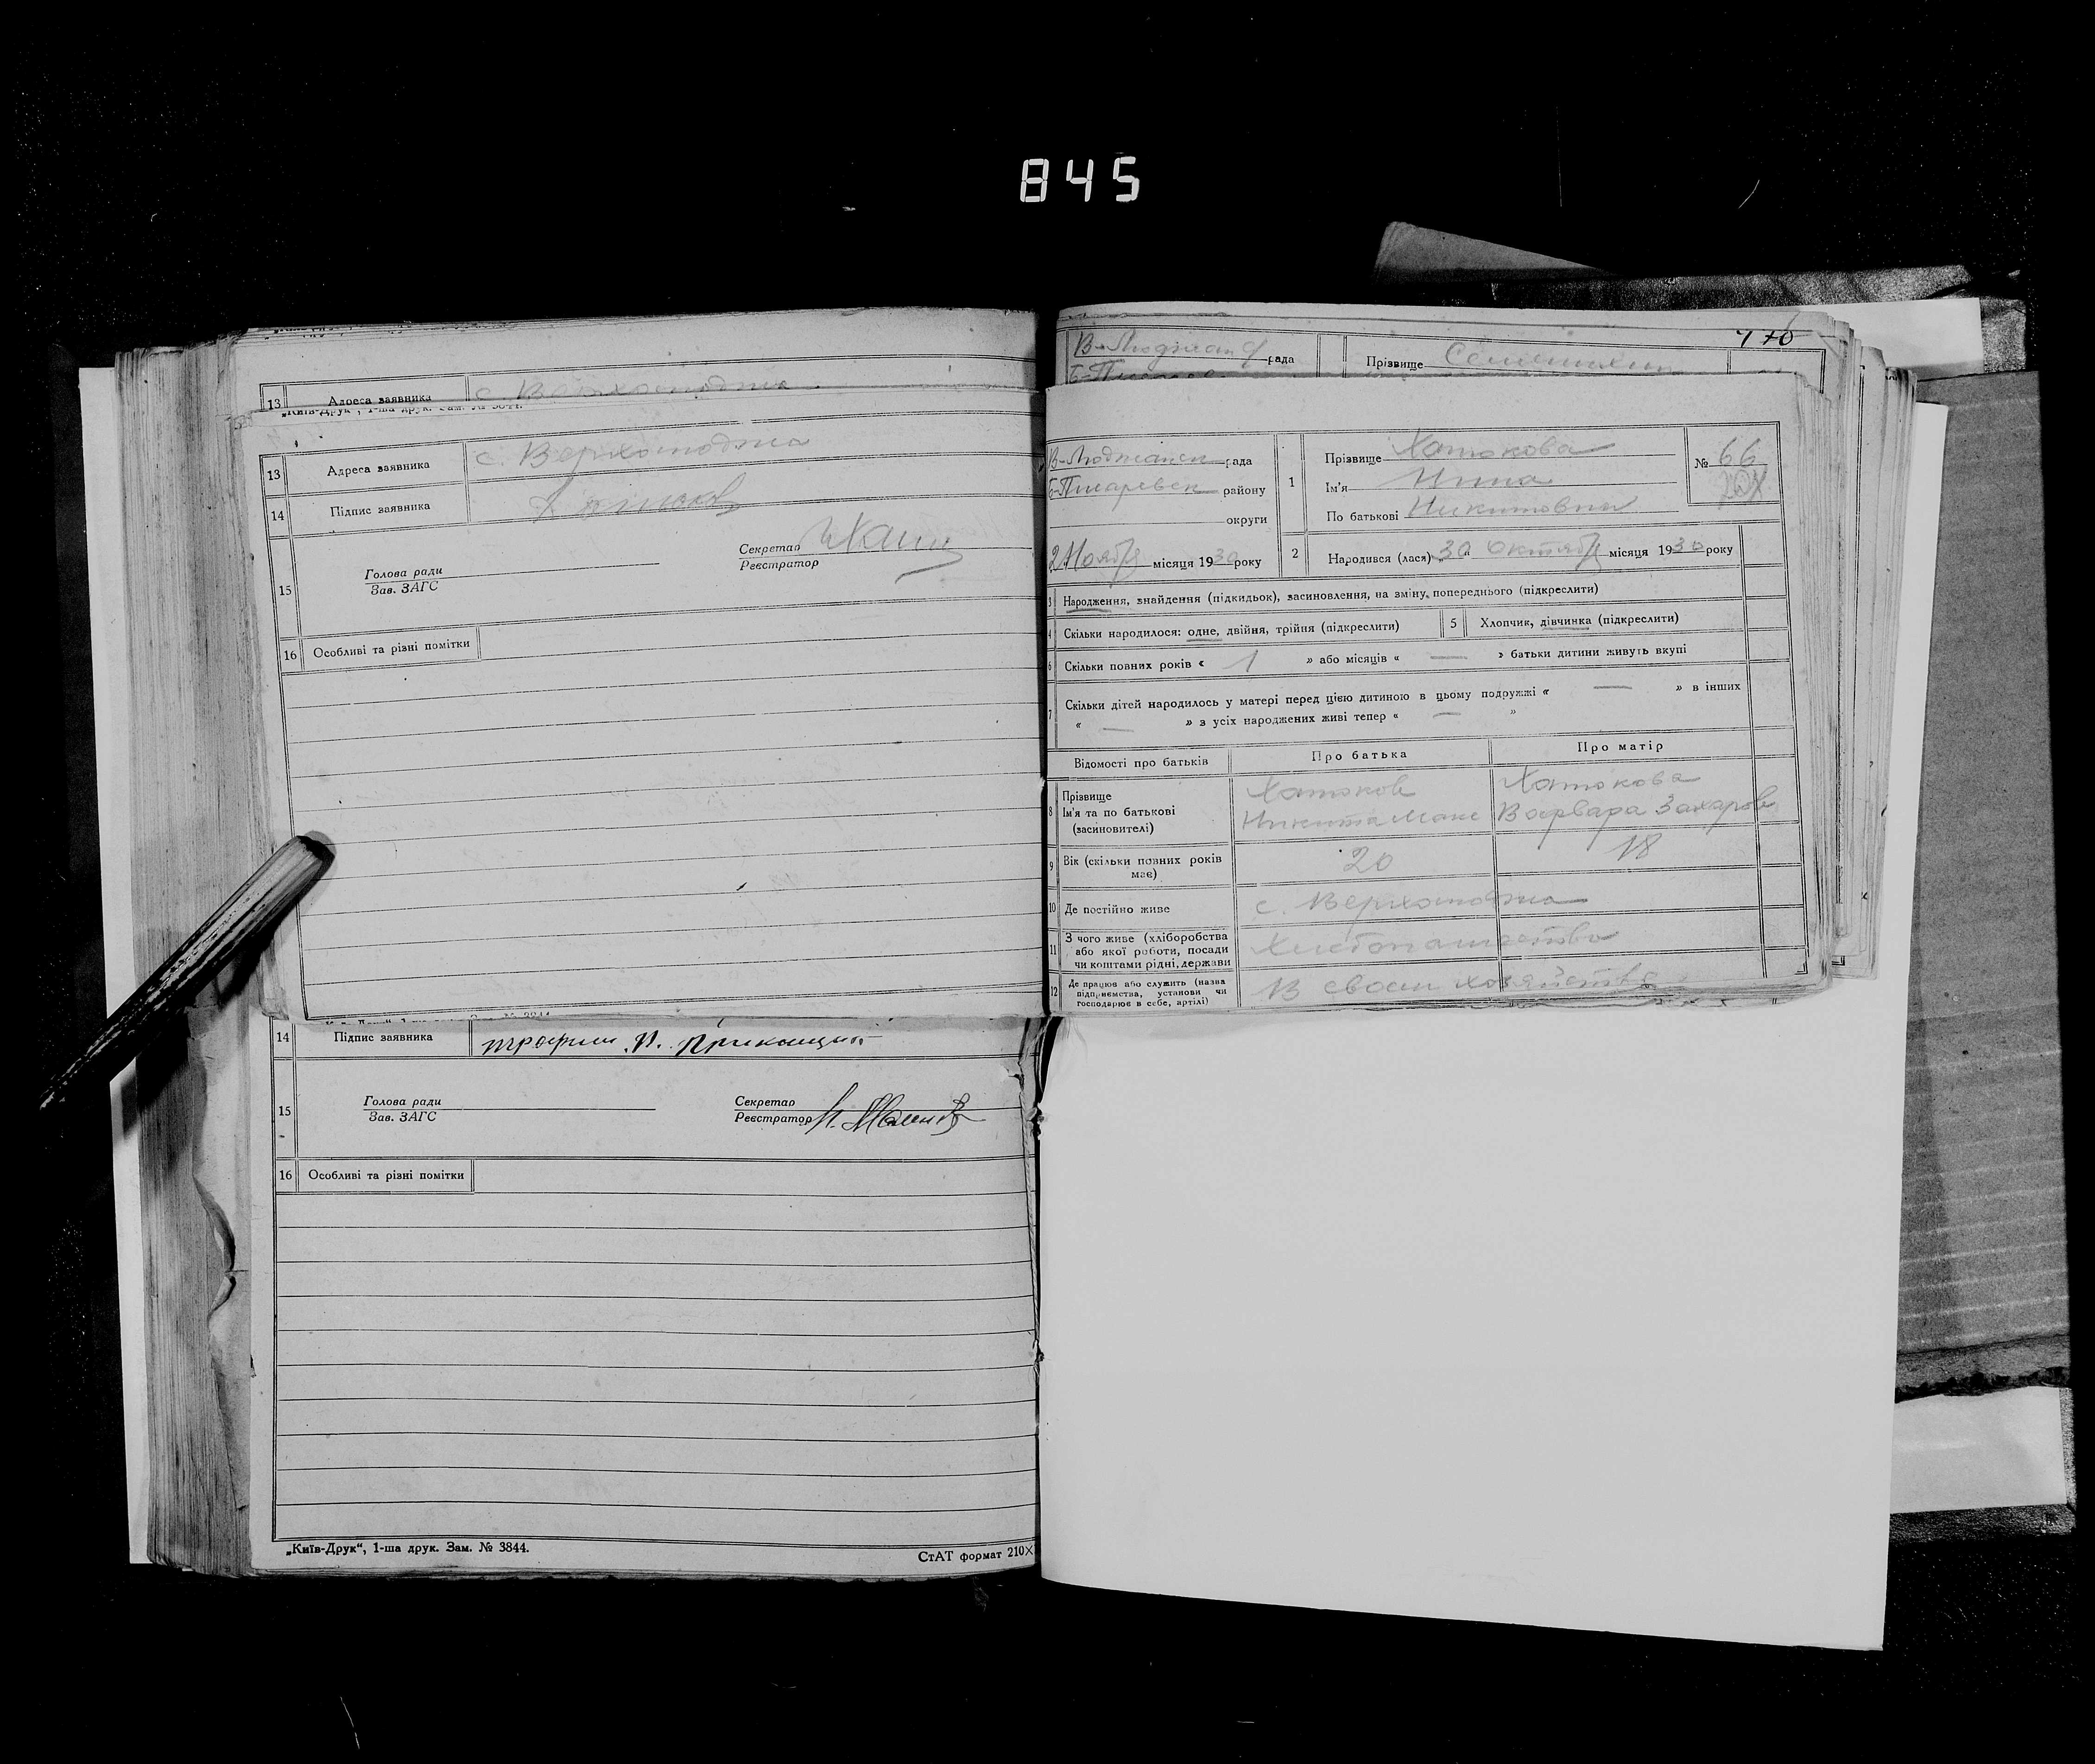 845
13 Адреса заявника с. Верхолюджа
„Київ-Друк", 1-ша друк. Зам. № 3844.
13 Адреса заявника с. Верхолюджа
14 Підпис заявника
15 Голова ради
Зав. ЗАГС
Секретар
Реєстратор
16 Особливі та різні помітки
14 Підпис заявника трофим П.
15 Голова ради
Зав. ЗАГС
Секретар
Реєстратор
16 Особливі та різні помітки
„Київ-Друк“, 1-ша друк. Зам. № 3844.
СтАТ формат 210×
рада
Прізвище
В-Люджанск рада
Б-Писаревск району
округи
2 Ноябр місяця 1930 року
1 Прізвище Хатюкова
Ім'я Нина
По батькові Никитовна
№ 66
2 Народився (лася) „30" Октябр місяця 1930 року
3 Народження, знайдення (підкидьок), засиновлення, на зміну попереднього (підкреслити)
4 Скільки народилося: одне, двійня, трійня (підкреслити)
5 Хлопчик, дівчинка (підкреслити)
6 Скільки повних років « 1 » або місяців « — » батьки дитини живуть вкупі
7 Скільки дітей народилось у матері перед цією дитиною в цьому подружжі « — » в інших
« — » з усіх народжених живі тепер « — »
Відомості про батьків Про батька Про матір
8 Прізвище
Ім'я та по батькові
(засиновителі)
Хатюков
Никита Макс
Хатюкова
Варвара Захаров
9 Вік (скільки повних років
має)
20 18
10 Де постійно живе с. Верхолюджа
11 З чого живе (хліборобства
або якої роботи, посади
чи коштами рідні, держави
Хлебопашество
12 Де працює або служить (назва
підприємства, установи чи
господарює в себе, артілі)
В своем хозяйстве